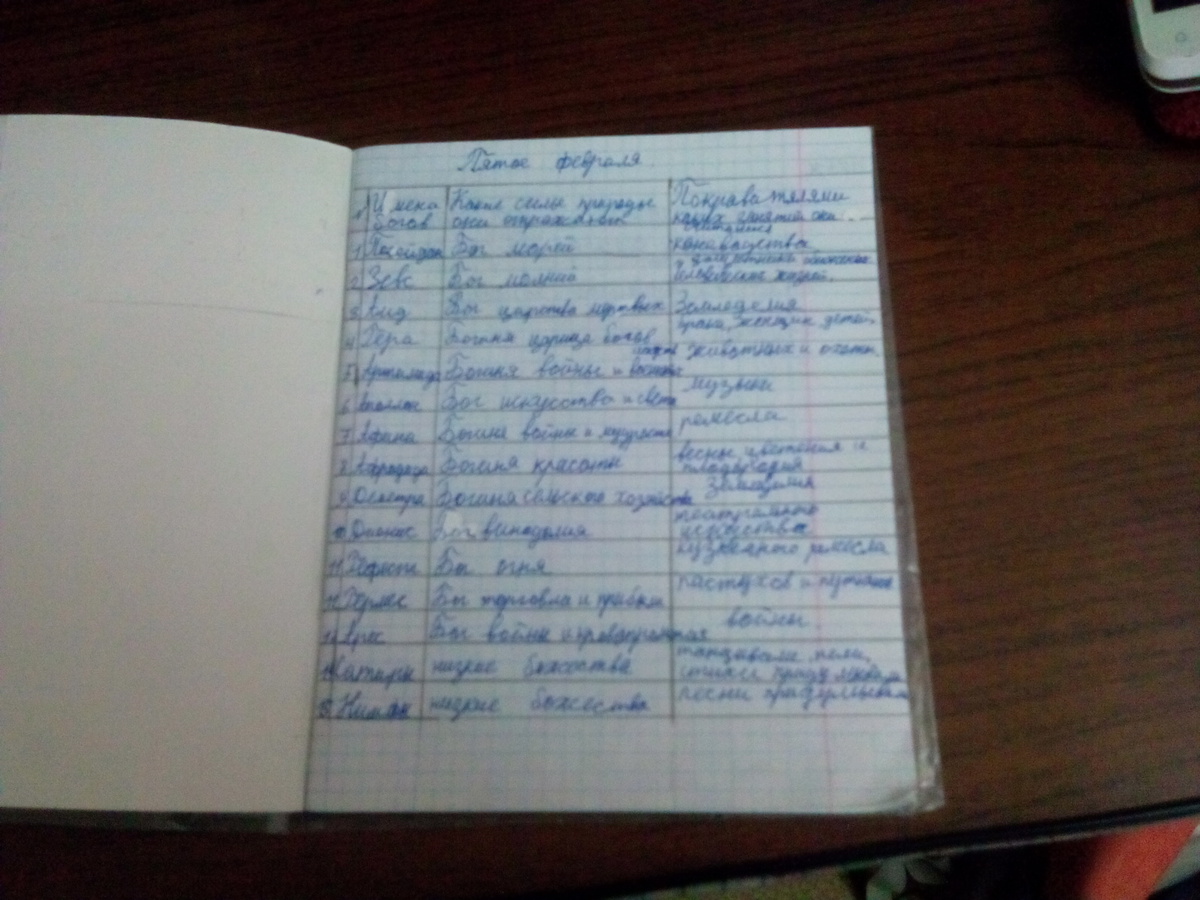 Пятое февраля
№ Имена богов Какие силы природы они отражают Покравателями каких занятий они считаются
1 Посейдон Бог морей конаводства
2 Зевс Бог молний человеческой жизней.
3 Аид Бог царства мёртвых Земледелия
4 Гера Богиня царица богов брака, женщин, детей
5 Артемида Богиня войны и животных и охоты.
6 Аполлон Бог искусства и света музыки
7 Афина Богиня войны и мудрости ремесла
8 Афродида Богиня красоты весны цветения и плодородия
9 Деметра Богиня сельского хозяйства Земледелия
10 Дионис Бог виноделия театрального искусства
11 Гефест Бог огня кузнечного ремесла
12 Гермес Бог торговли и прибыли пастухов и путников
13 Арес Бог войны и кровопролития войны
14 Сатиры низкие божества танцевали, пели, стихи
15 Нимфы низкие божества песни придумывали